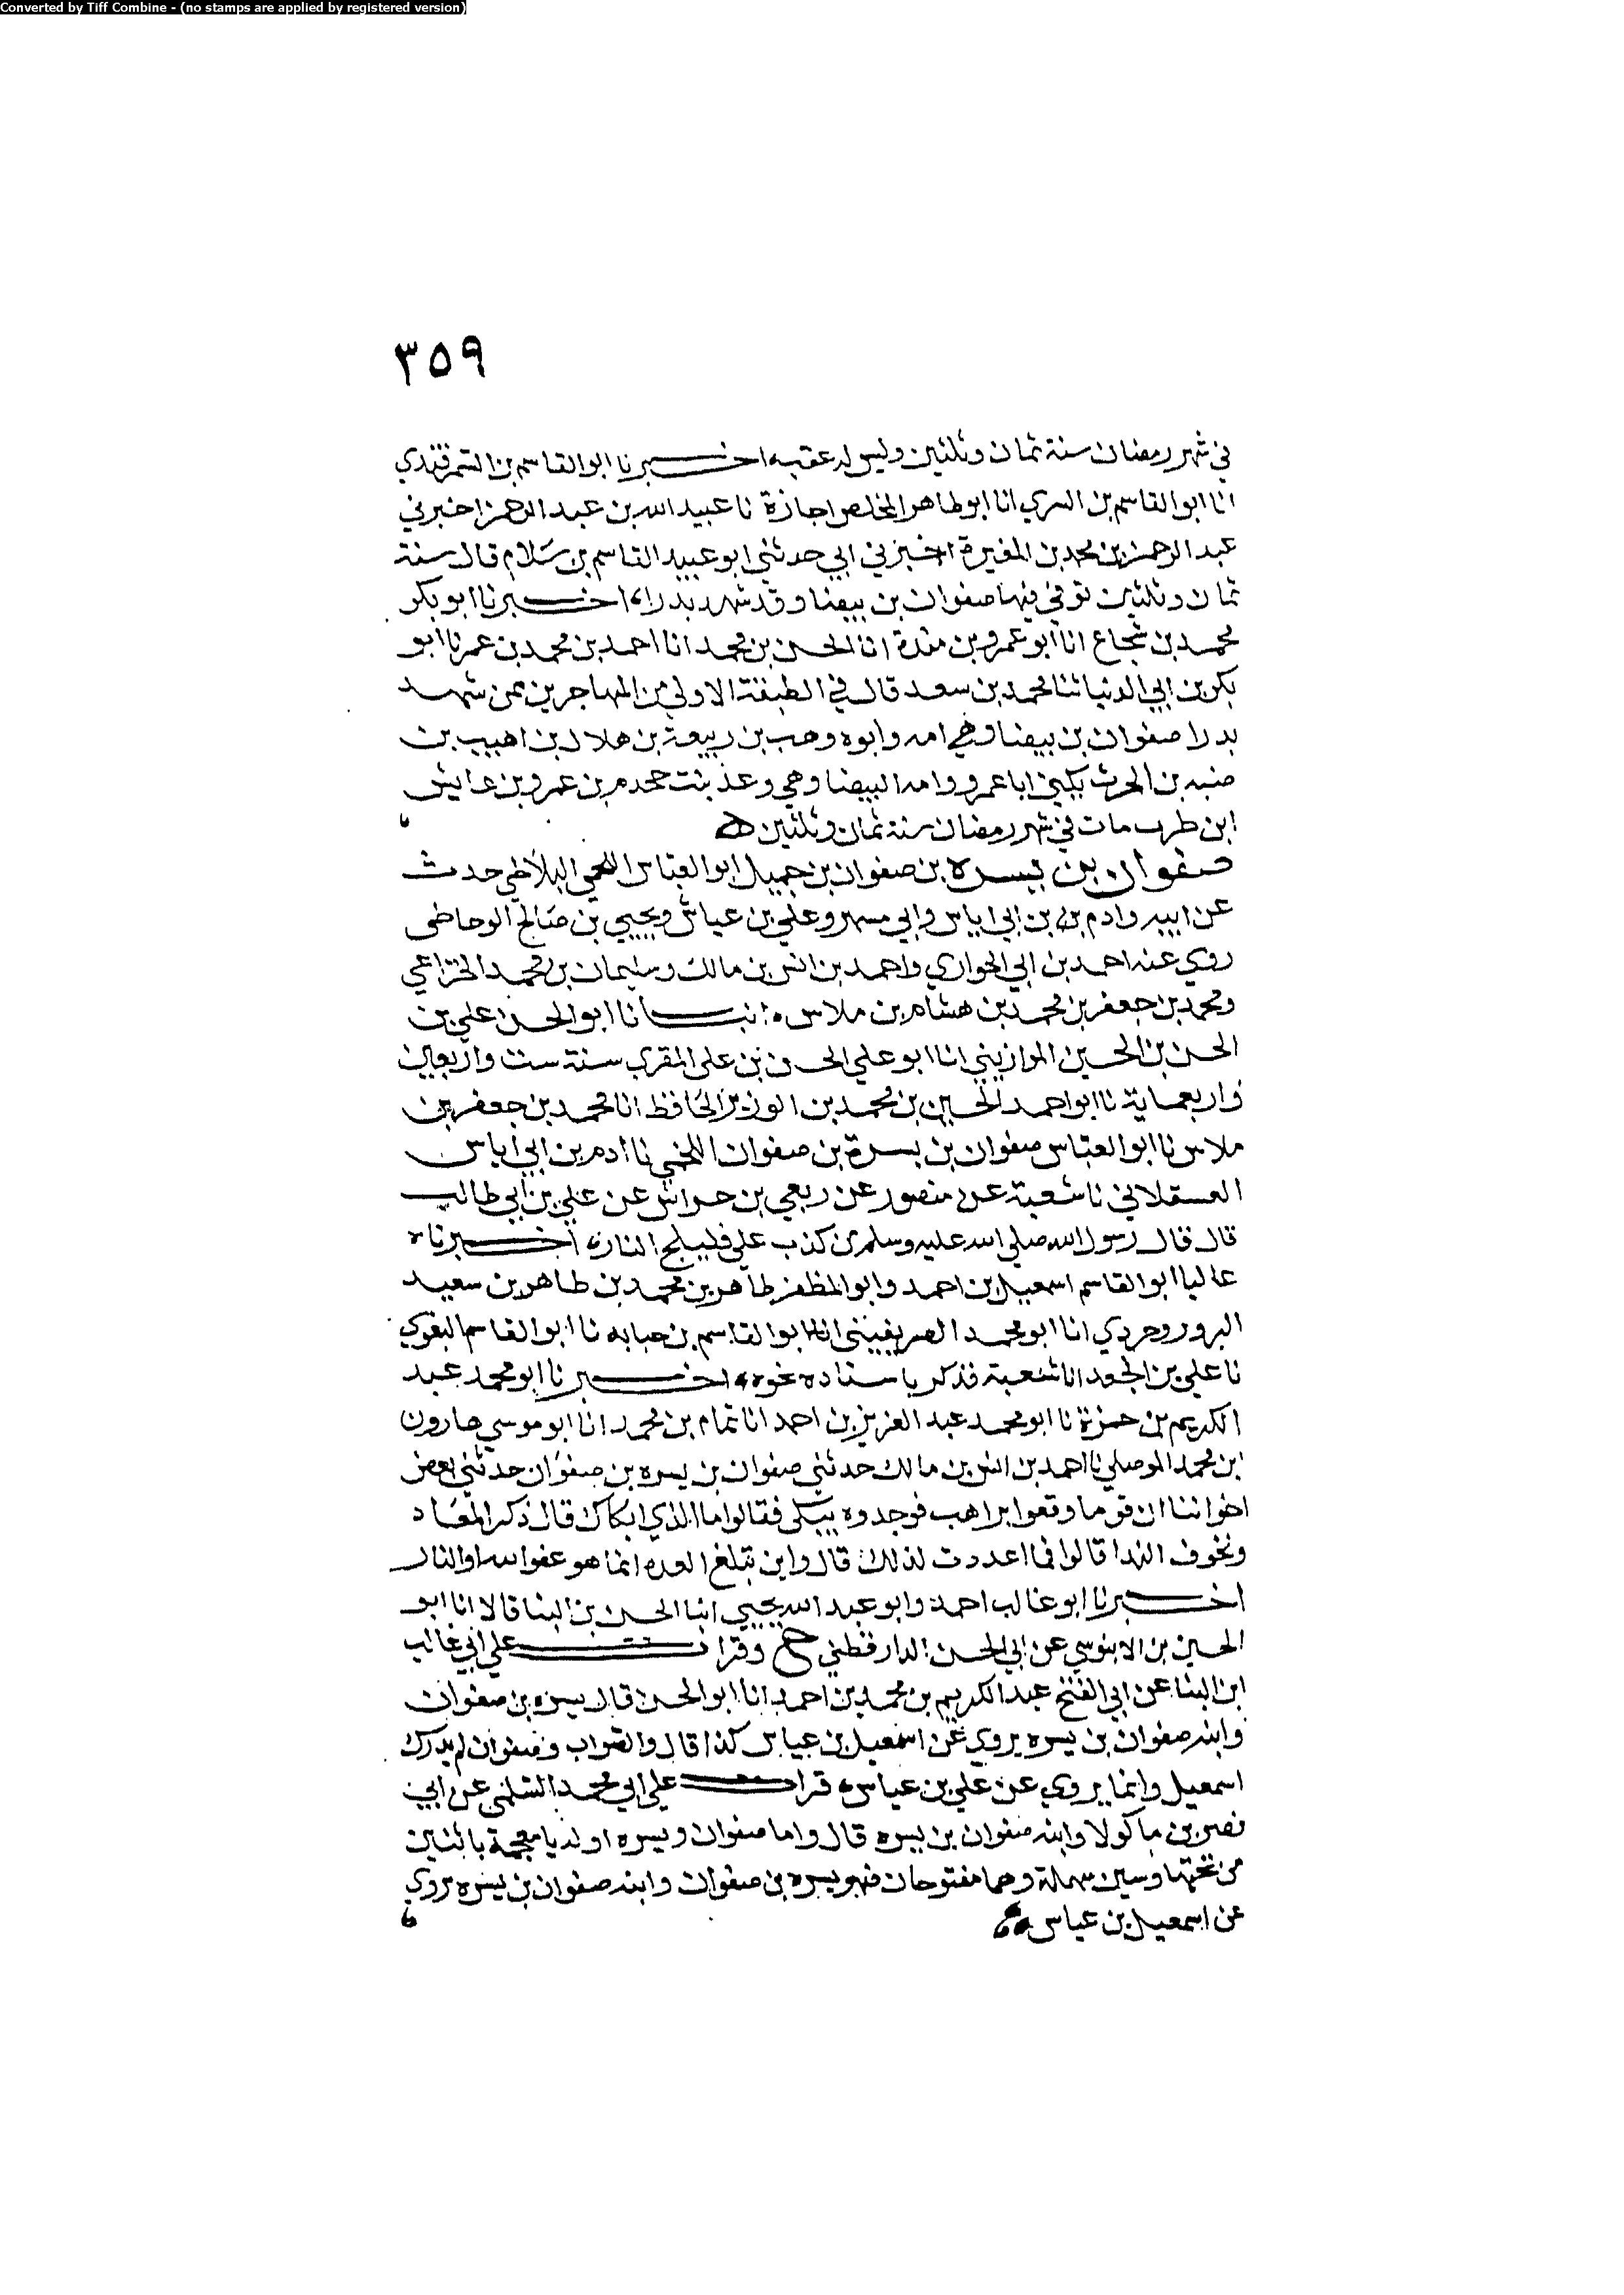 Converted by Tiff Combine - (no stamps are applied by registered version)
٣٥٩
في شهر رمضان سنة ثمان وثلثين وليس له عقب، اخبرنا ابو القاسم بن السمرقندي
انا ابو القاسم بن السري انا ابو طاهر المخلص اجازة نا عبيد الله بن عبد الرحمن اخبرني
عبد الرحمن بن محمد بن المغيرة اخبرني ابي حدثني ابو عبيد القاسم بن سلام قال سنة
ثمان وثلثين توفي فيها صفوان بن بيضا وقد شهد بدرا، اخبرنا ابو بكر
محمد بن شجاع انا ابو عمرو بن مندة انا الحسن بن محمد انا احمد بن محمد بن عمر نا ابو
بكر بن ابي الدنيا ثنا محمد بن سعد قال في الطبقة الاولى من المهاجرين ممن شهد
بدرا صفوان بن بيضا وهي امه وابوه وهب بن ربيعة بن هلال بن اهيب بن
ضبه بن الحرث يكنى ابا عمرو وامه البيضا وهي وعد بنت جحدم بن عمرو بن عايش
ابن طرب مات في شهر رمضان سنة ثمان وثلثين
صفوان بن يسره بن صفوان بن جميل ابو العباس اللخمي البلاطي حدث
عن ابيه وادم بن ابي اياس وابي مسهر وعلي بن عياش ويحيى بن صالح الوحاظي
روى عنه احمد بن ابي الحواري واحمد بن انس بن مالك وسليمان بن محمد الخزاعي
ومحمد بن جعفر بن محمد بن هشام بن ملاس، انبانا ابو الحسن علي بن
الحسن بن الحسين الموازيني انا ابو علي الحسن بن علي المقري سنة ست واربعين
واربعماية نا ابو احمد الحسين بن محمد بن الوزير الحافظ انا محمد بن جعفر بن
ملاس نا ابو العباس صفوان بن يسرة بن صفوان اللخمي نا ادم بن ابي اياس
العسقلاني نا شعبة عن منصور عن ربعي بن حراش عن علي بن ابي طالب
قال قال رسول الله صلى الله عليه وسلم من كذب علي فليلج النار، اخبرناه
عاليا ابو القاسم اسمعيل بن احمد وابو المظفر طاهر بن محمد بن طاهر بن سعيد
البروروجردي انا ابو محمد الصريفيني انا ابو القاسم بن حبابه نا ابو القاسم البغوي
نا علي بن الجعد انا شعبة فذكر باسناده نحوه، اخبرنا ابو محمد عبد
الكريم بن حمزة نا ابو محمد عبد العزيز بن احمد انا تمام بن محمد انا ابو موسى هارون
ابن محمد الموصلي نا احمد بن انس بن مالك حدثني صفوان بن يسره بن صفوان حدثني بعض
اخواننا ان قوما وقعوا براهب فوجدوه يبكي فقالوا ما الذي ابكاك قال ذكر المعاد
وتخوف الندا قالوا فما اعددت لذلك قال واين تبلغ العده انما هو عفو الله او النار
اخبرنا ابو غالب احمد وابو عبد الله يحيى ابنا الحسن بن البنا قالا انا ابو
الحسين بن الابنوسي عن ابي الحسن الدارقطني ح وقرات على ابي غالب
ابن البنا عن ابي الفتح عبد الكريم بن محمد بن احمد انا ابو الحسن قال يسره بن صفوان
وابنه صفوان بن يسره يروي عن اسمعيل بن عياش كذا قال والصواب وصفوان لم يدرك
اسمعيل وانما يروي عن علي بن عياش، قرات على ابي محمد السلمي عن ابي
نصر بن ماكولا وابنه صفوان بن يسره قال واما صفوان ويسره اوله يا معجمة باثنين
من تحتها وسين مهملة وهما مفتوحان فهو يسره بن صفوان وابنه صفوان بن يسره يروي
عن اسمعيل بن عياش